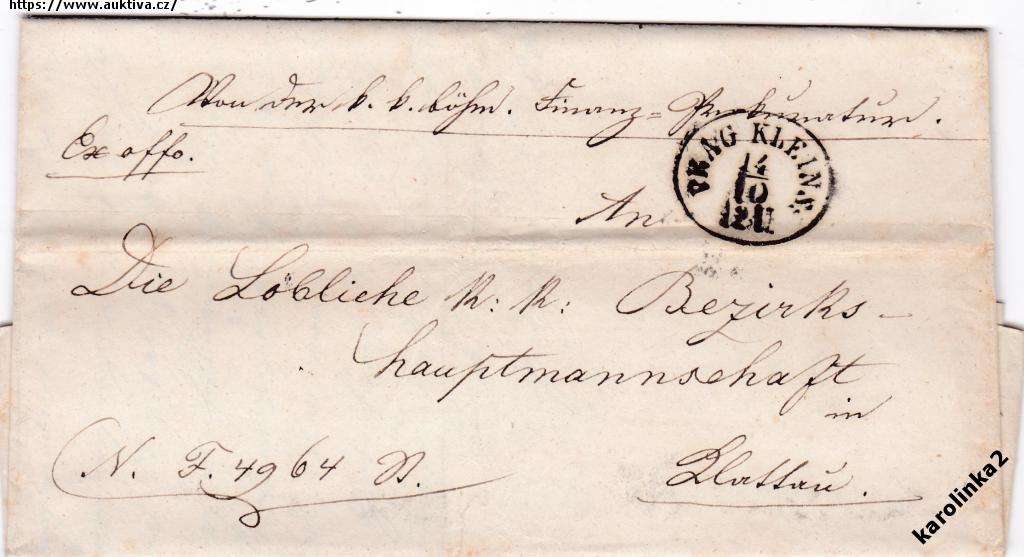 https://www.auktiva.cz/
Von der k. k. böhm. Finanz=Prokuratur.
Ex offo.
PRAG KLEINS.
14
10
An
Die Löbliche K: K: Bezirks-
hauptmannschaft
in
N. F. 4964
Klattau.
karolinka2